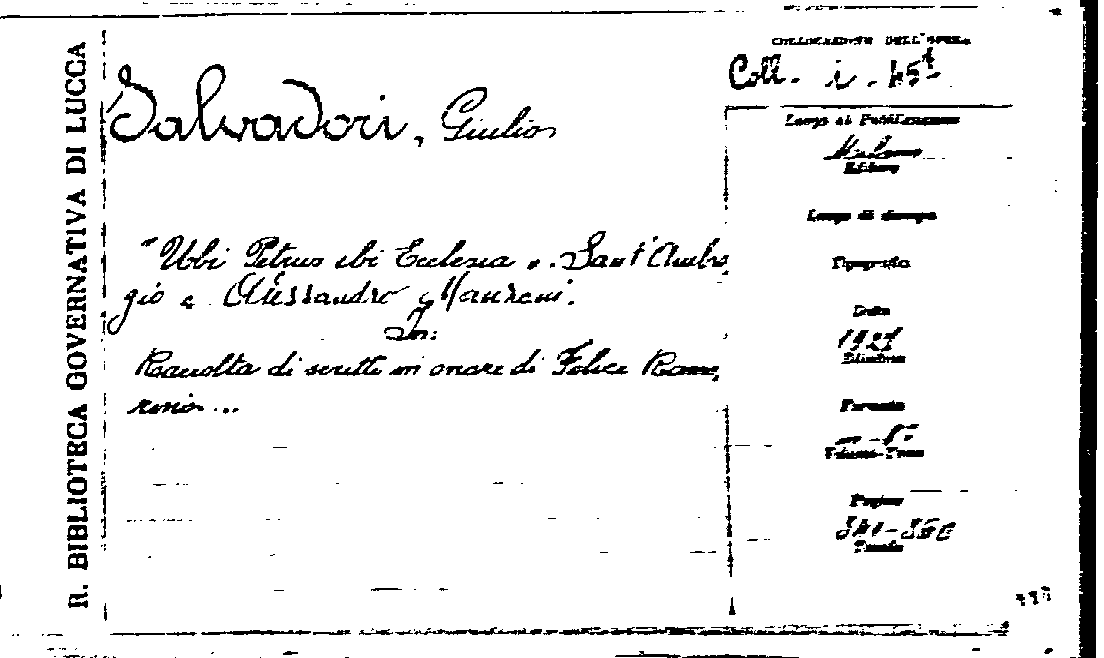 R. BIBLIOTECA GOVERNATIVA DI LUCCA
Salvadori, Giulio
"Ubi Petrus ibi Ecclesia". Sant'Ambro
gio e Alessandro Manzoni.
In:
Raccolta di scritti in onore di Felice Ramo
rino...
COLLOCAZIONE DELL'OPERA
Coll. i. 45
Luogo di Pubblicazione
Milano
Editore
Luogo di stampa
Tipografia
Data
1927
Edizione
Formato
in-8°
Volume-Tomo
Pagine
Tavole